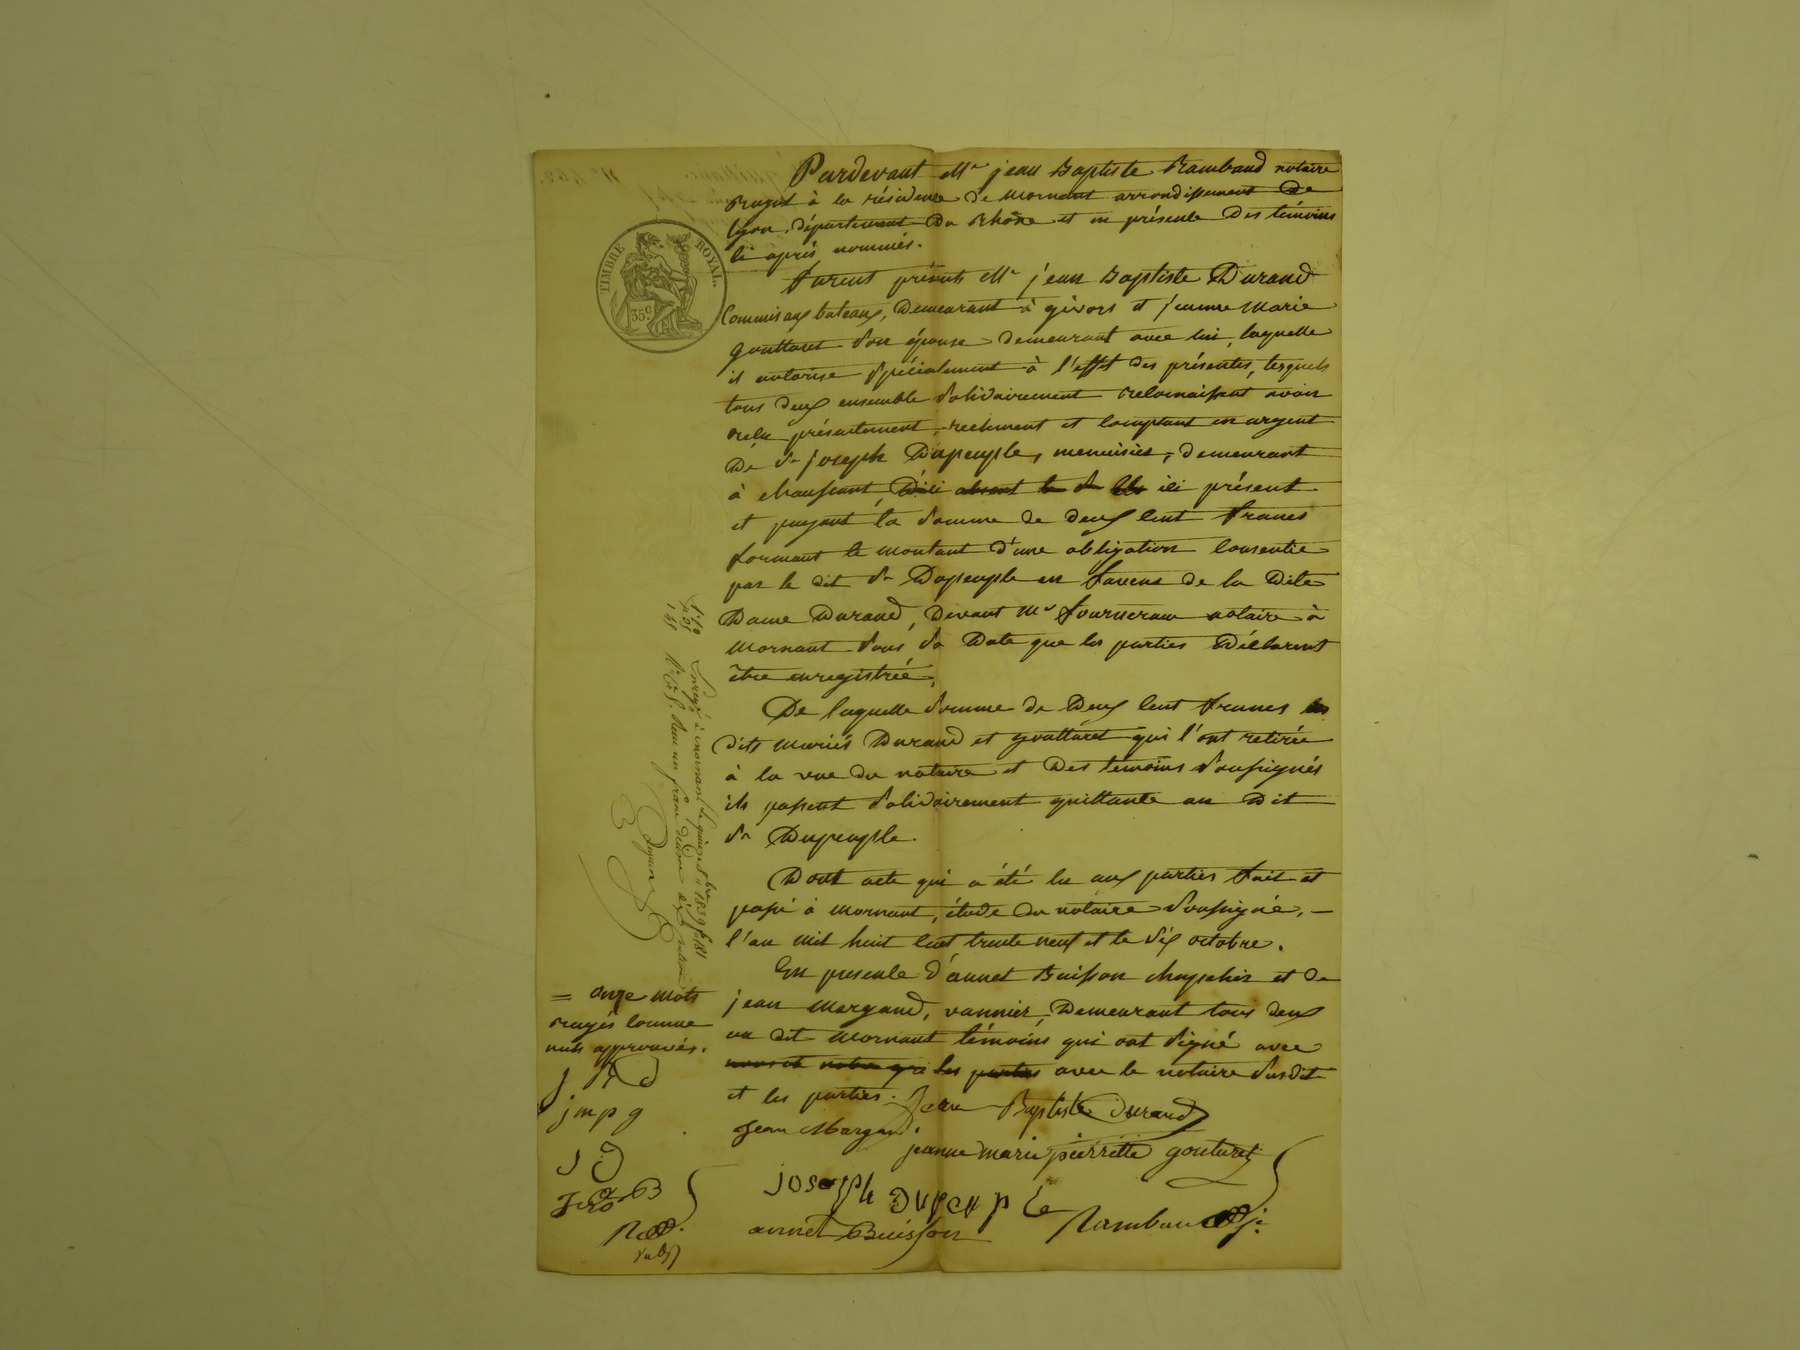 Pardevant Me jean Baptiste Rambaud notaire
Royal à la résidence de Mornant arrondissement de
Lyon, département du Rhône et en présence des témoins
ci après nommés.
TIMBRE ROYAL.
35c
furent présents Mr jean Baptiste Durand
Commis aux bateaux, demeurant à givors et jeanne Marie
gouttaret son épouse demeurant avec lui, laquelle
il autorise spécialement à l'effet des présentes, lesquels
tous deux ensemble solidairement reconnaissent avoir
reçu présentement, réelment et comptant en argent
De Sr joseph Dupeuple, menuisier, demeurant
à chaussant, absent ici présent
et payant la somme de deux cent francs
formant le montant d'une obligation consentie
par le dit Sr Dupeuple en faveur de la dite
Dame Durand, devant Me fournereau notaire à
Mornant sous sa date que les parties déclarent
être enregistrée.
De laquelle somme de Deux cent francs les
dits mariés Durand et gouttaret qui l'ont retirée
à la vue du notaire et des témoins soussignés
ils passent solidairement quittance au dit
Sr Dupeuple.
Dont acte qui a été lu aux parties fait et
passé à Mornant, étude du notaire soussigné, —
l'an mil huit cent trente neuf et le dix octobre.
En presence d'annet Buisson chapelier et de
jean Margand, vannier, demeurant tous deux
au dit Mornant témoins qui ont signé avec
les parties avec le notaire susdit
et les parties.
= onze mots
rayés comme
nuls approuvés.
j B D
j m p g
J D
R
Enregé à mornant le quinze 8bre 1839 fo 181
Reçu un franc décime
Jean Baptiste Durand
Jean Margand
jeanne marie pierrette goutaret
josepH DUPEUPLE
annet Buisson
Rambaud